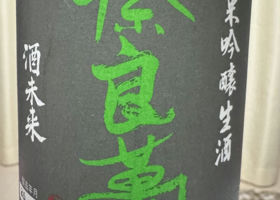 米吟醸生酒
奈良萬
酒未来